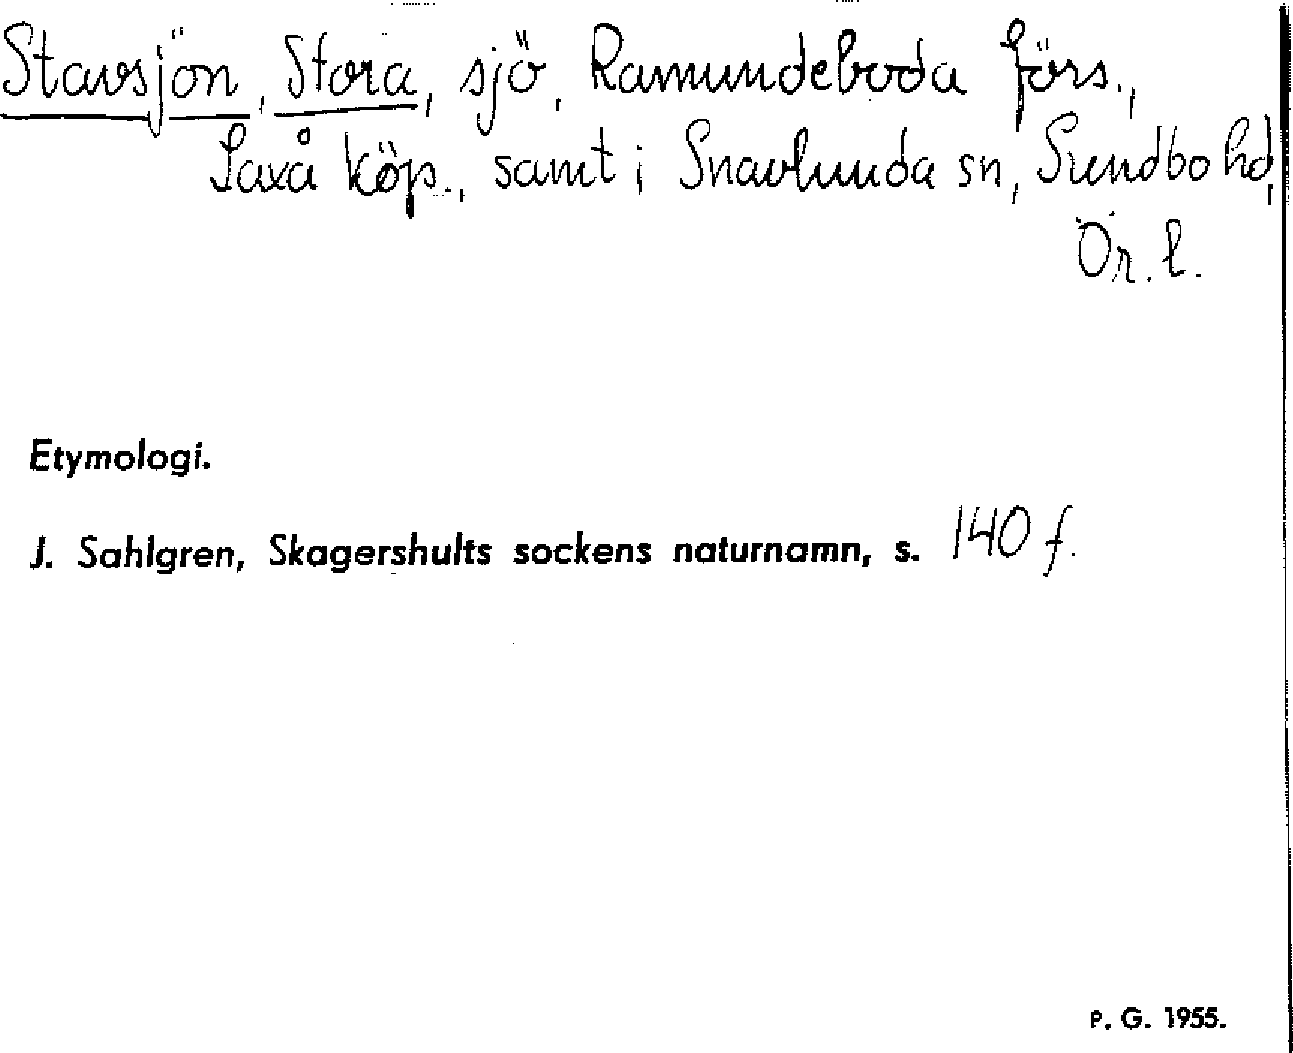 Stavsjön, Stora, sjö, Ramundeboda förs.,
Laxå köp., samt i Snavlunda sn, Sundbo hd,
Ör. l.
Etymologi.
J. Sahlgren, Skagershults sockens naturnamn, s. 140 f.
P. G. 1955.